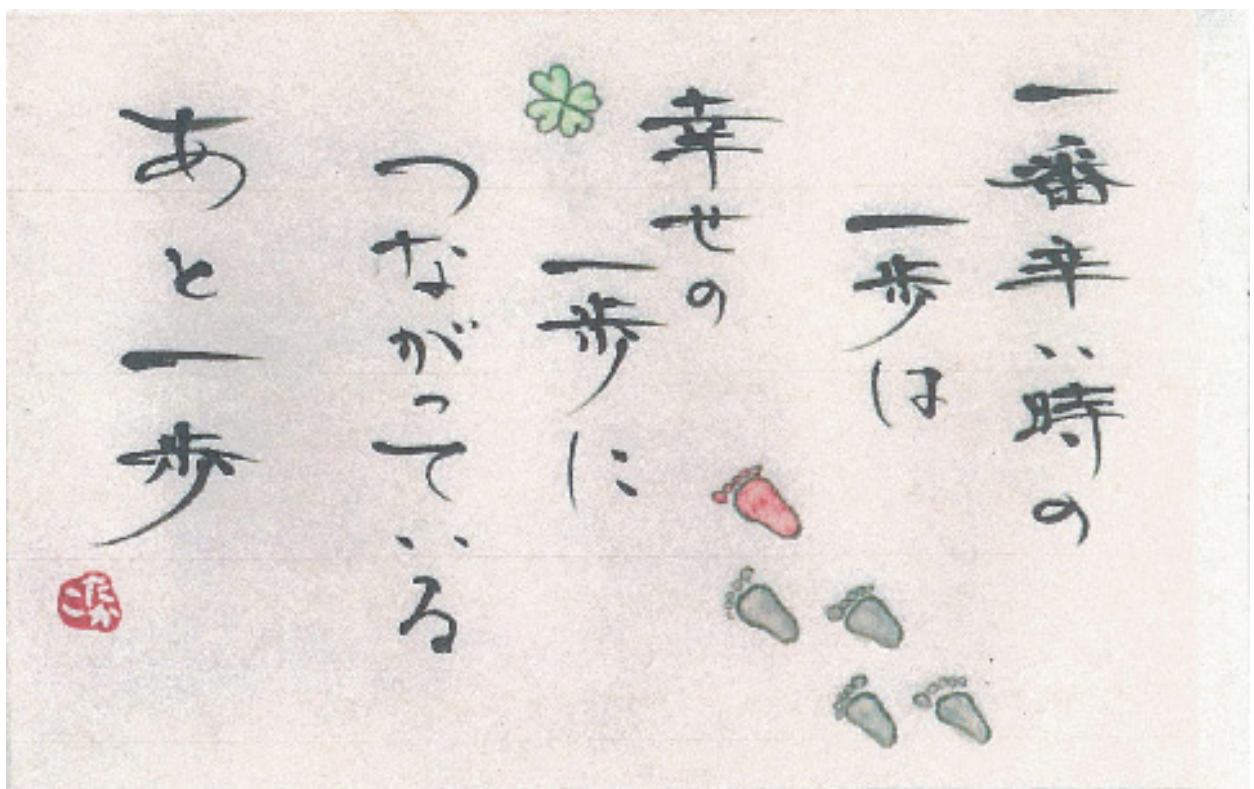 一番辛い時の
一歩は
幸せの
一歩に
つながっている
あと一歩
たかこ